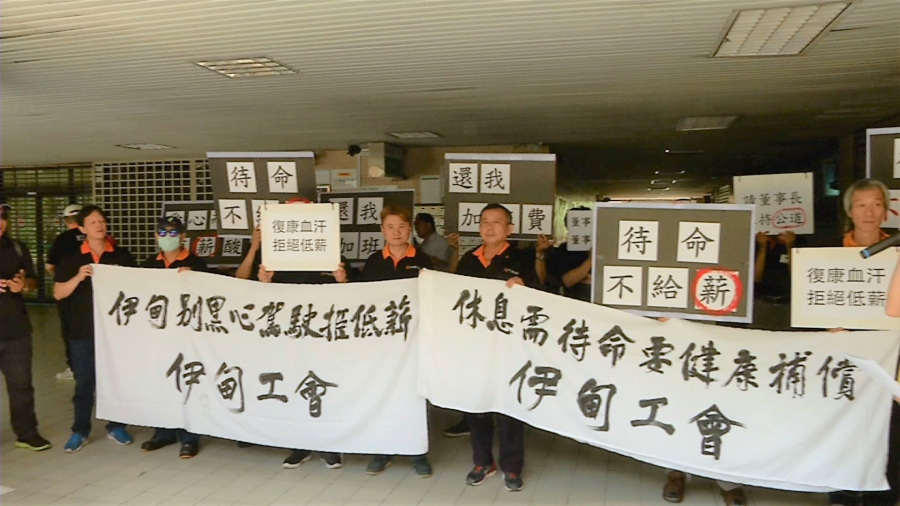 待命
不
還我
加
費
還我
加班
心
薪 酸
復康血汗
拒絕低薪
待命
不給薪
董事
董事
請董事長
持公道
復康血汗
拒絕低薪
伊甸別黑心駕駛拒低薪
伊甸工會
休息需待命要健康補償
伊甸工會